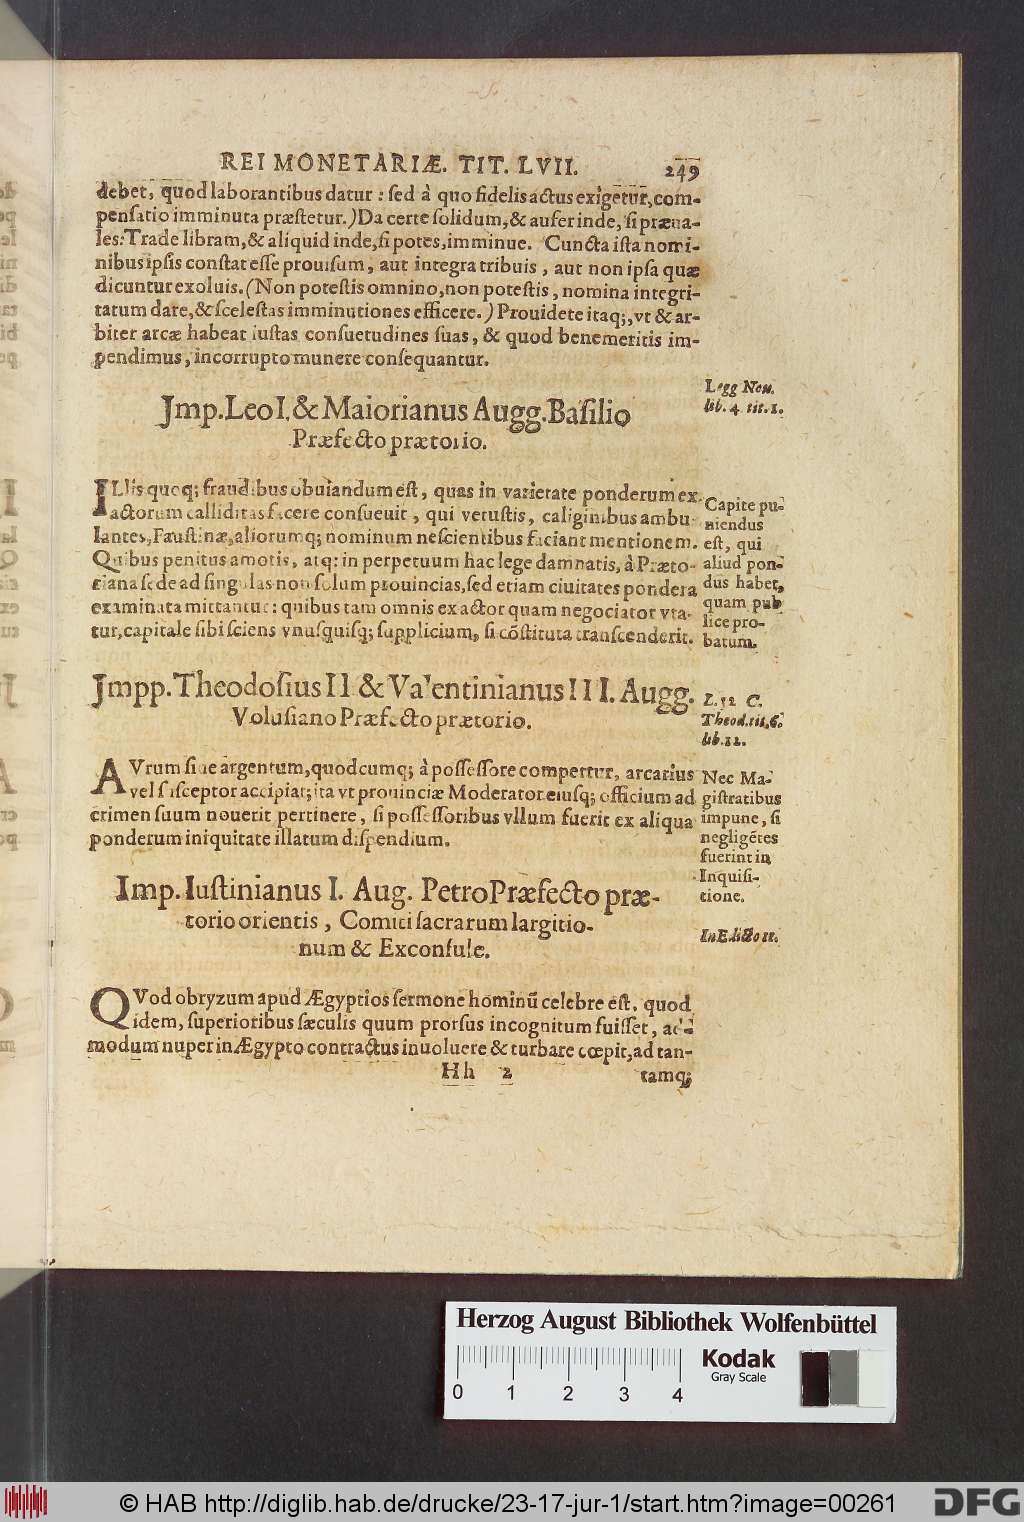 REI MONETARIÆ. TIT. LVII. 249
debet, quod laborantibus datur : sed à quo fidelis actus exigetur, com-
pensatio imminuta præstetur.) Da certe solidum, & aufer inde, si præua-
les: Trade libram, & aliquid inde, si potes, imminue. Cuncta ista nomi-
nibus ipsis constat esse prouisum, aut integra tribuis, aut non ipsa quæ
dicuntur exoluis. (Non potestis omnino, non potestis, nomina integri-
tatum dare, & scelestas imminutiones efficere.) Prouidete itaq;, vt & ar-
biter arcæ habeat iustas consuetudines suas, & quod benemeritis im-
pendimus, incorrupto munere consequantur.
Jmp. Leo I. & Maiorianus Augg. Basilio
Præfecto prætorio.
Legg Nou.
lib. 4 tit. 1.
ILlis quoq; fraudibus obuiandum est, quas in varietate ponderum ex-
actorum calliditas facere consueuit, qui vetustis, caliginibus ambu-
lantes, Faustinæ, aliorumq; nominum nescientibus faciant mentionem.
Quibus penitus amotis, atq: in perpetuum hac lege damnatis, à Præto-
riana sede ad singulas non solum prouincias, sed etiam ciuitates pondera
examinata mittantur: quibus tam omnis exactor quam negociator vta-
tur, capitale sibi sciens vnusquisq; supplicium, si cõstituta transcenderit.
Capite pu-
niendus
est, qui
aliud pon-
dus habet,
quam pub
lice pro-
batum.
Jmpp. Theodosius II & Valentinianus III. Augg.
Volusiano Præfecto prætorio.
L. 32 C.
Theod. tit. 6.
lib. 12.
AVrum siue argentum, quodcumq; à possessore compertur, arcarius
vel susceptor accipiat; ita vt prouinciæ Moderator eiusq; officium ad
crimen suum nouerit pertinere, si possessoribus vllum fuerit ex aliqua
ponderum iniquitate illatum dispendium.
Nec Ma-
gistratibus
impune, si
negligẽtes
fuerint in
Inquisi-
tione.
Imp. Iustinianus I. Aug. Petro Præfecto præ-
torio orientis, Comiti sacrarum largitio-
num & Exconsule.
In Edicto 11.
QVod obryzum apud Ægyptios sermone hominũ celebre est, quod
idem, superioribus sæculis quum prorsus incognitum fuisset, ad-
modum nuper in Ægypto contractus inuoluere & turbare cœpit, ad tan-
Hh 2 tamq;
Herzog August Bibliothek Wolfenbüttel
Kodak
Gray Scale
0 1 2 3 4
© HAB http://diglib.hab.de/drucke/23-17-jur-1/start.htm?image=00261
DFG